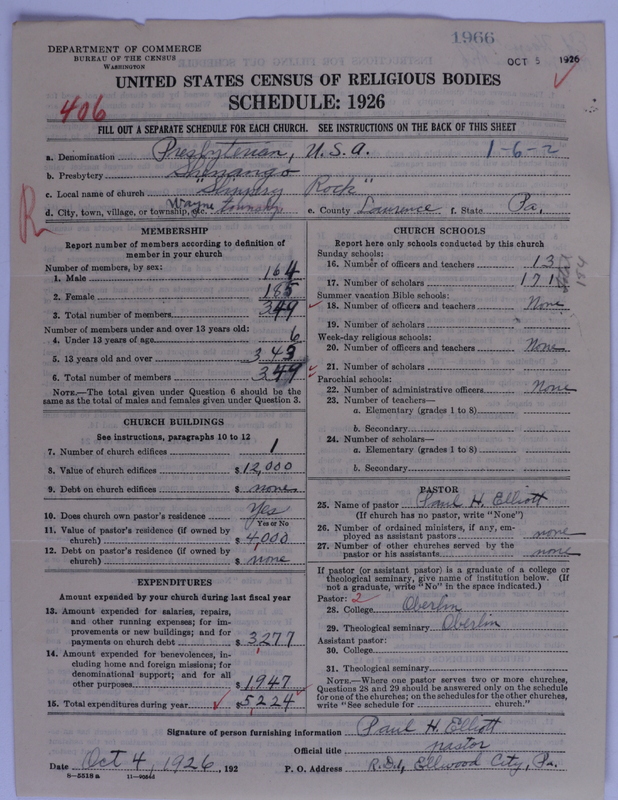 1966
DEPARTMENT OF COMMERCE
BUREAU OF THE CENSUS
WASHINGTON
OCT 5 1926
UNITED STATES CENSUS OF RELIGIOUS BODIES
SCHEDULE: 1926
406
FILL OUT A SEPARATE SCHEDULE FOR EACH CHURCH. SEE INSTRUCTIONS ON THE BACK OF THIS SHEET
a. Denomination Presbyterian, U.S.A. 1-6-2
b. Presbytery Shenango
c. Local name of church "Slippery Rock"
d. City, town, village, or township, etc. Wayne township e. County Lawrence f. State Pa.
R
MEMBERSHIP
Report number of members according to definition of
member in your church
Number of members, by sex:
1. Male 164
2. Female 185
3. Total number of members 349
Number of members under and over 13 years old:
4. Under 13 years of age 6
5. 13 years old and over 343
6. Total number of members 349
NOTE.—The total given under Question 6 should be
same as the total of males and females given under Question 3.
CHURCH BUILDINGS
See instructions, paragraphs 10 to 12
7. Number of church edifices 1
8. Value of church edifices $12,000
9. Debt on church edifices $ none
10. Does church own pastor's residence Yes
Yes or No
11. Value of pastor's residence (if owned by
church) $4,000
12. Debt on pastor's residence (if owned by
church) $ none
EXPENDITURES
Amount expended by your church during last fiscal year
13. Amount expended for salaries, repairs,
and other running expenses; for im-
provements or new buildings; and for
payments on church debt $ 3277
14. Amount expended for benevolences, in-
cluding home and foreign missions; for
denominational support; and for all
other purposes $ 1947
15. Total expenditures during year $5224
CHURCH SCHOOLS
Report here only schools conducted by this church
Sunday schools:
16. Number of officers and teachers 13
17. Number of scholars 171
184
Summer vacation Bible schools:
18. Number of officers and teachers None
19. Number of scholars
Week-day religious schools:
20. Number of officers and teachers None
21. Number of scholars
Parochial schools:
22. Number of administrative officers None
23. Number of teachers—
a. Elementary (grades 1 to 8)
b. Secondary
24. Number of scholars—
a. Elementary (grades 1 to 8)
b. Secondary
PASTOR
25. Name of pastor Paul H. Elliott
(If church has no pastor, write "None")
26. Number of ordained ministers, if any, em-
ployed as assistant pastors none
27. Number of other churches served by the
pastor or his assistants none
If pastor (or assistant pastor) is a graduate of a college or
theological seminary, give name of institution below. (If
not a graduate, write "No" in the space indicated.)
Pastor: 2
28. College Oberlin
29. Theological seminary Oberlin
Assistant pastor:
30. College
31. Theological seminary
NOTE.—Where one pastor serves two or more churches,
Questions 28 and 29 should be answered only on the schedule
for one of the churches; on the schedules for the other churches,
write "See schedule for church."
Signature of person furnishing information Paul H. Elliott
Official title pastor
Date Oct 4, 1926, 192 P. O. Address R.D.1, Ellwood City, Pa.
8—5518a 11—9064d